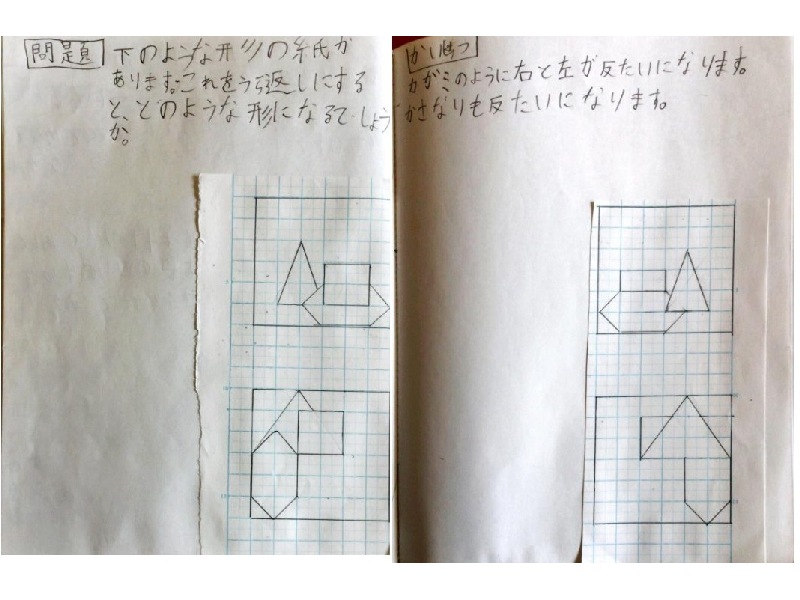 問題
下のような形の紙が
あります。これをうら返しにする
と、どのような形になるでしょう
か。
かいせつ
カガミのように右と左が反たいになります。
かさなりも反たいになります。